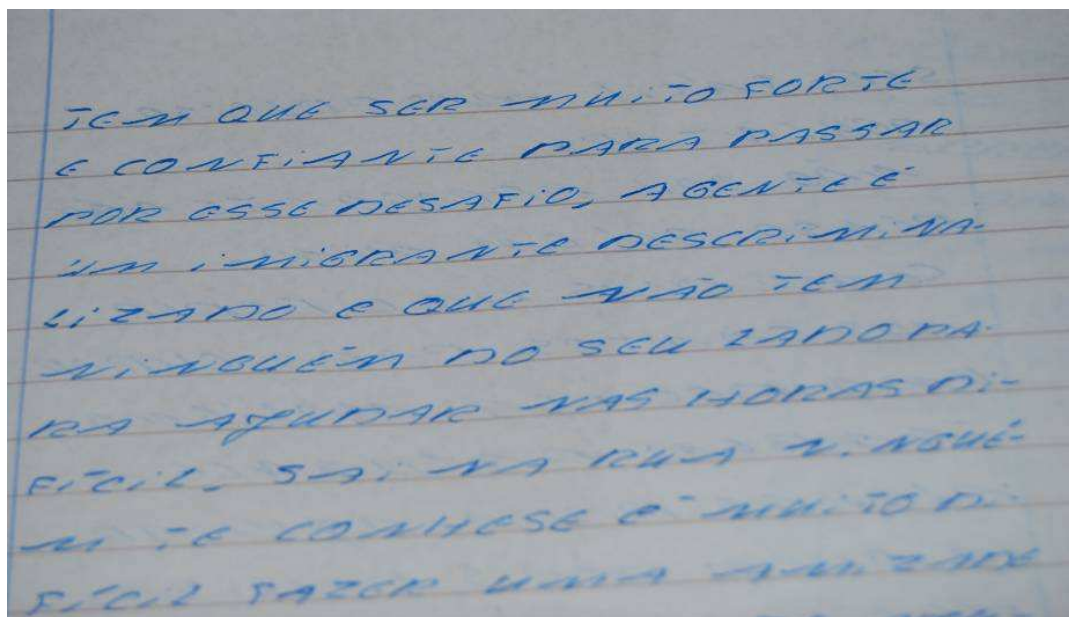 TEM QUE SER MUITO FORTE
E CONFIANTE PARA PASSAR
POR ESSE DESAFIO, AGENTE É
UM IMIGRANTE DESCRIMINA-
LIZADO E QUE NÃO TEM
NINGUÉM DO SEU LADO PA-
RA AJUDAR NAS HORAS DI-
FÍCIL, SAI NA RUA NINGUÉ-
M TE CONHESE E MUITO DI-
FÍCIL FAZER UMA AMIZADE